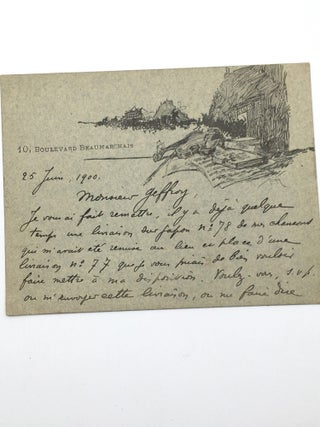 10, Boulevard Beaumarchais
25 Juin, 1900.
Monsieur Geffroy
Je vous ai fait remettre, il y a déjà quelque
temps une livraison du Japon n° 78 de nos
qui m'avait été remise au lieu et place d'une
livraison n° 77 que je vous priais de bien vouloir
faire mettre à ma disposition. Voulez-vous, s.v.p.
ou m'envoyer cette livraison, ou me faire dire